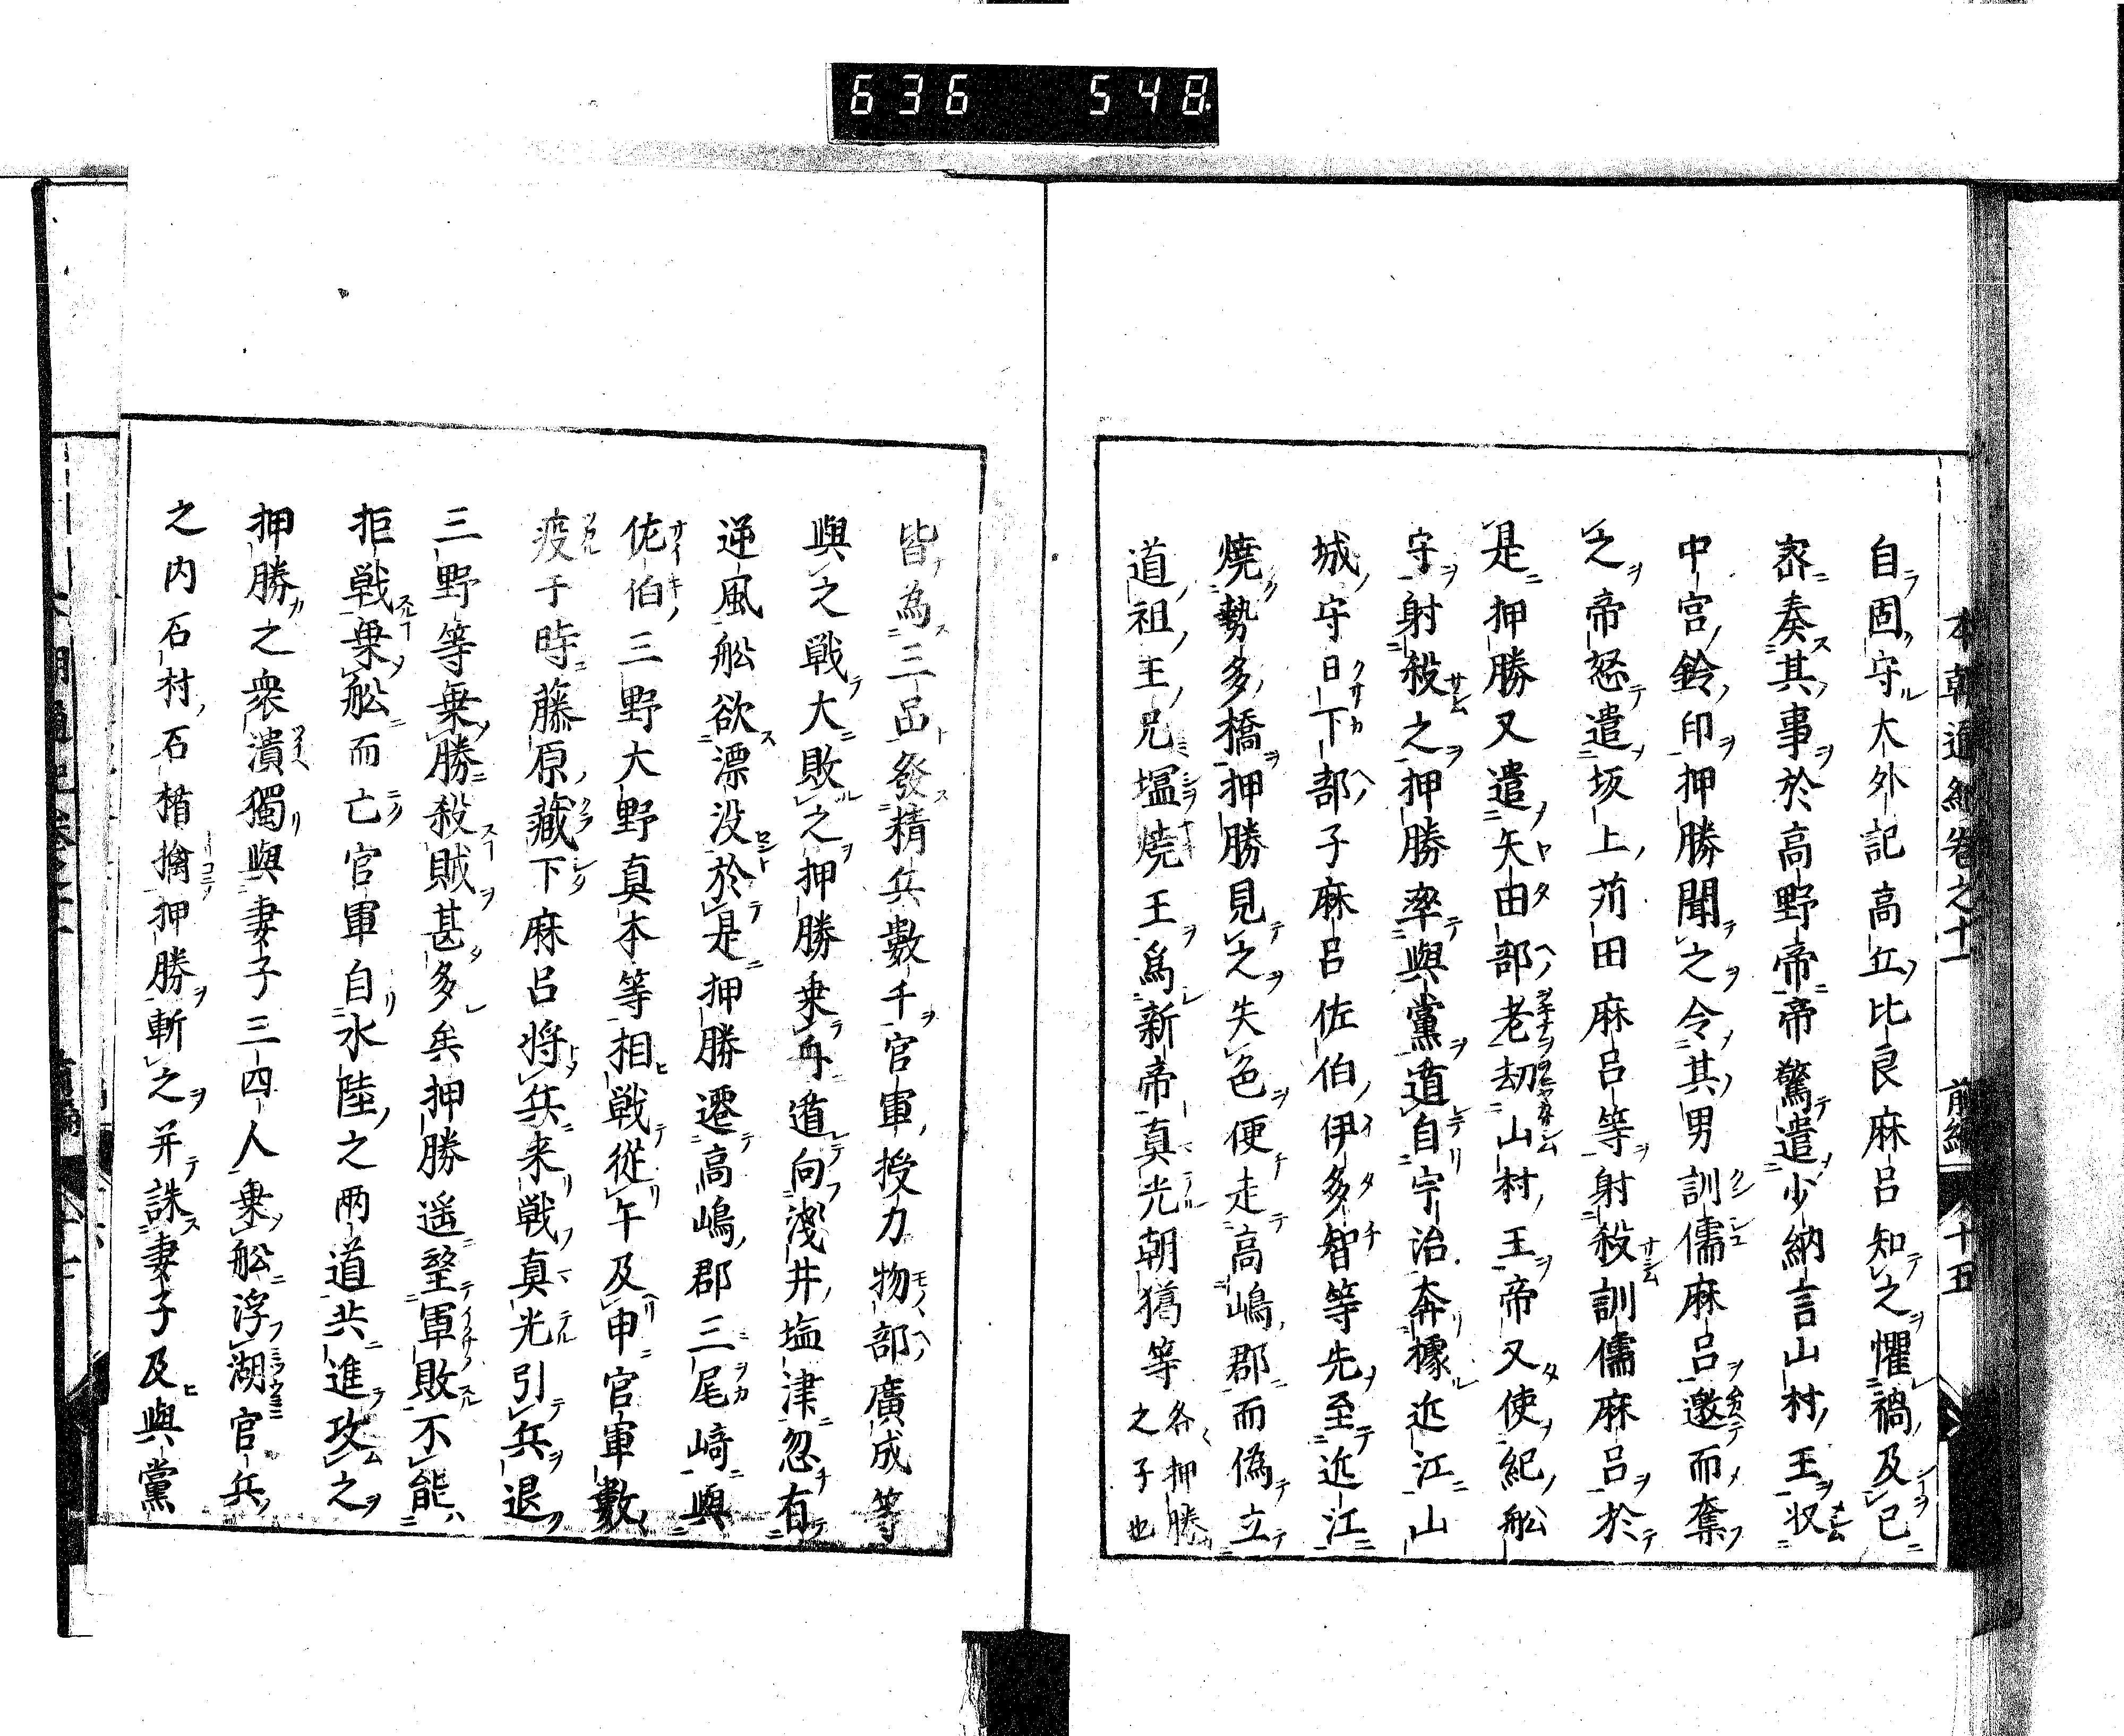 636 548
自固守大外記高丘比良麻呂知之懼禍及已
密奏其事於高野帝帝驚遣少納言山村王収
中宮鈴印押勝聞之令其男訓儒麻呂邀而奪
之帝怒遣坂上苅田麻呂等射殺訓儒麻呂於
是押勝又遣矢田部老劫山村王帝又使紀舩
守射殺之押勝率與黨遁自宇治奔據近江山
城守日下部子麻呂佐伯伊多智等先至近江
燒勢多橋押勝見之失色便走高嶋郡而偽立
道祖王兄塩焼王為新帝真光朝獦等各押勝之子也
皆為三品發精兵數千官軍授力物部廣成等
與之戰大敗之押勝乗舟遁向淺井塩津忽有
逆風舩欲漂没於是押勝遷高嶋郡三尾﨑與
佐伯三野大野真本等相戦從午及申官軍數
疲于時藤原藏下麻呂将兵来戦真光引兵退
三野等乗勝殺賊甚多矣押勝遥望軍敗不能
拒戦乗舩而亡官軍自水陸之两道共進攻之
押勝之衆潰獨與妻子三四人乗舩浮湖官兵
之内石村石楯擒押勝斬之并誅妻子及與黨